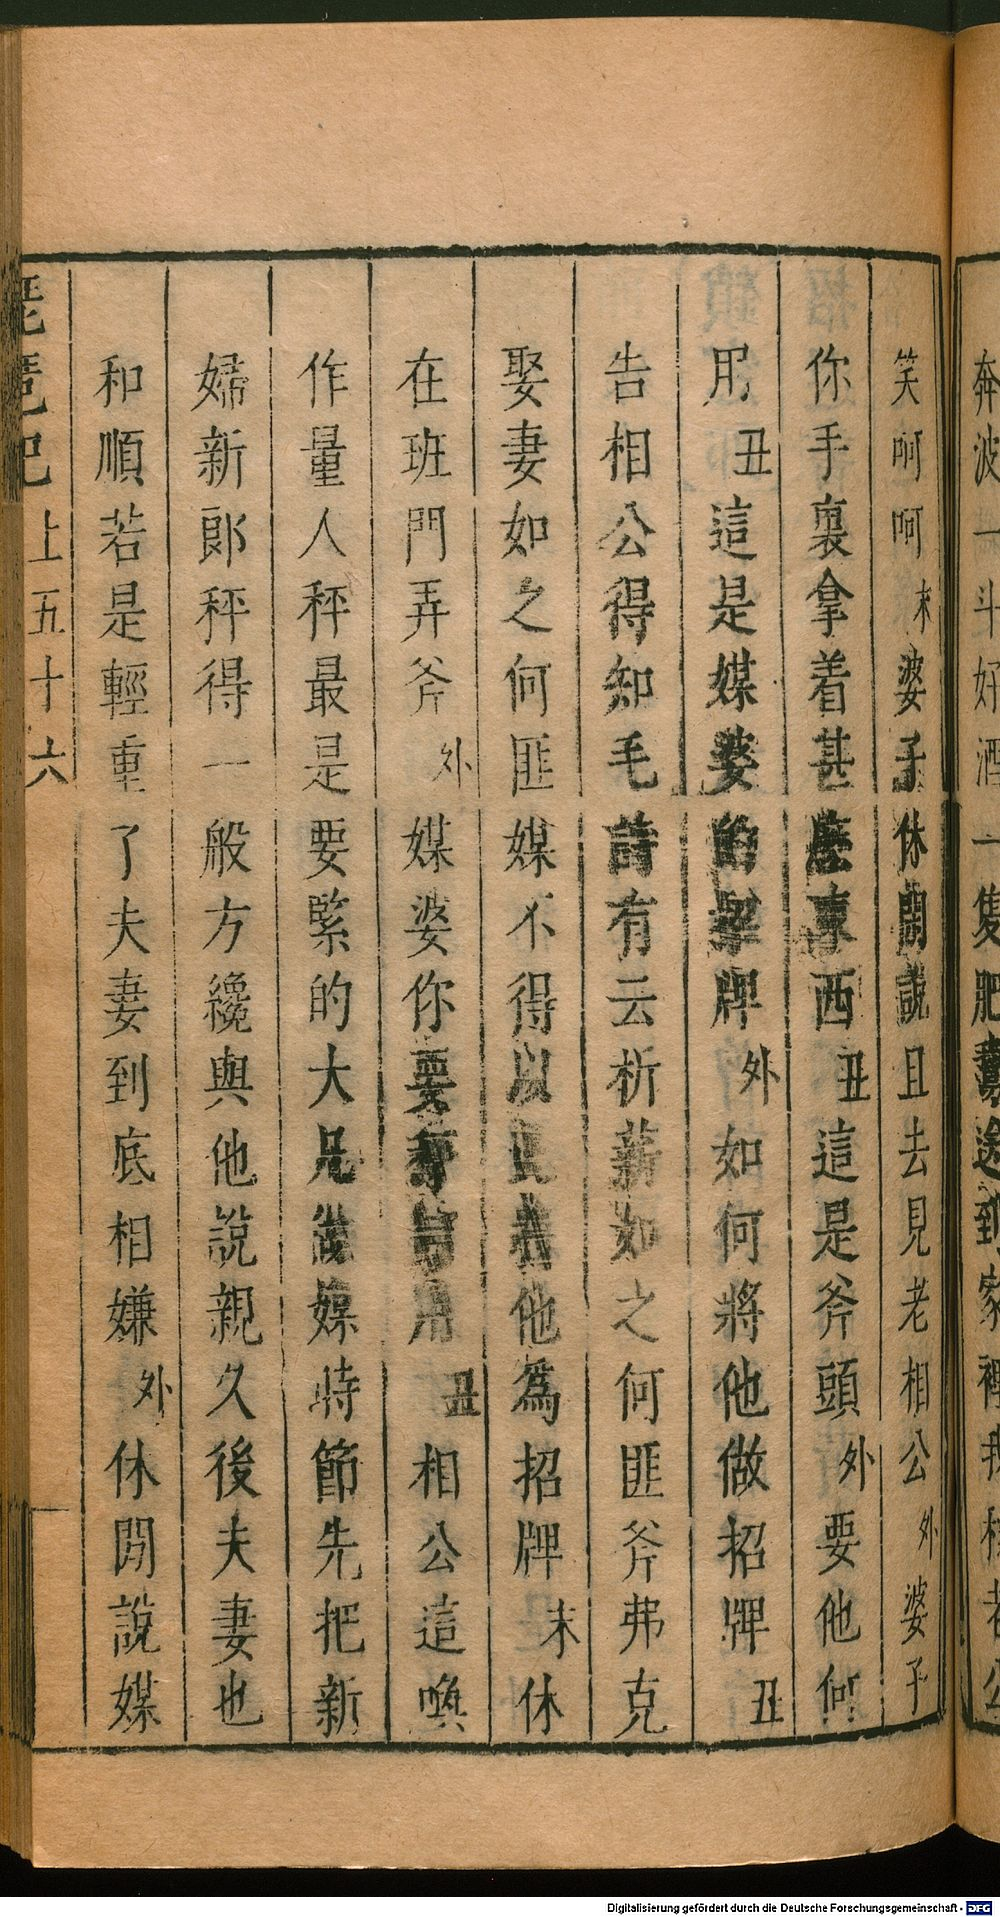 奔波一斗好酒一隻肥鵞送到家裡我
笑呵呵末婆子休閒說且去見老相公外婆子
你手裏拿着甚麽東西丑這是斧頭外要他何
用丑這是媒婆的招牌外如何將他做招牌丑
告相公得知毛詩有云析薪如之何匪斧弗克
娶妻如之何匪媒不得以此把他爲招牌末休
在班門弄斧外媒婆你要秤何用丑相公這喚
作量人秤最是要緊的大凡做媒時節先把新
婦新郎秤得一般方纔與他說親久後夫妻也
和順若是輕重了夫妻到底相嫌外休閒說媒
琵琶記上五十六
Digitalisierung gefördert durch die Deutsche Forschungsgemeinschaft - DFG